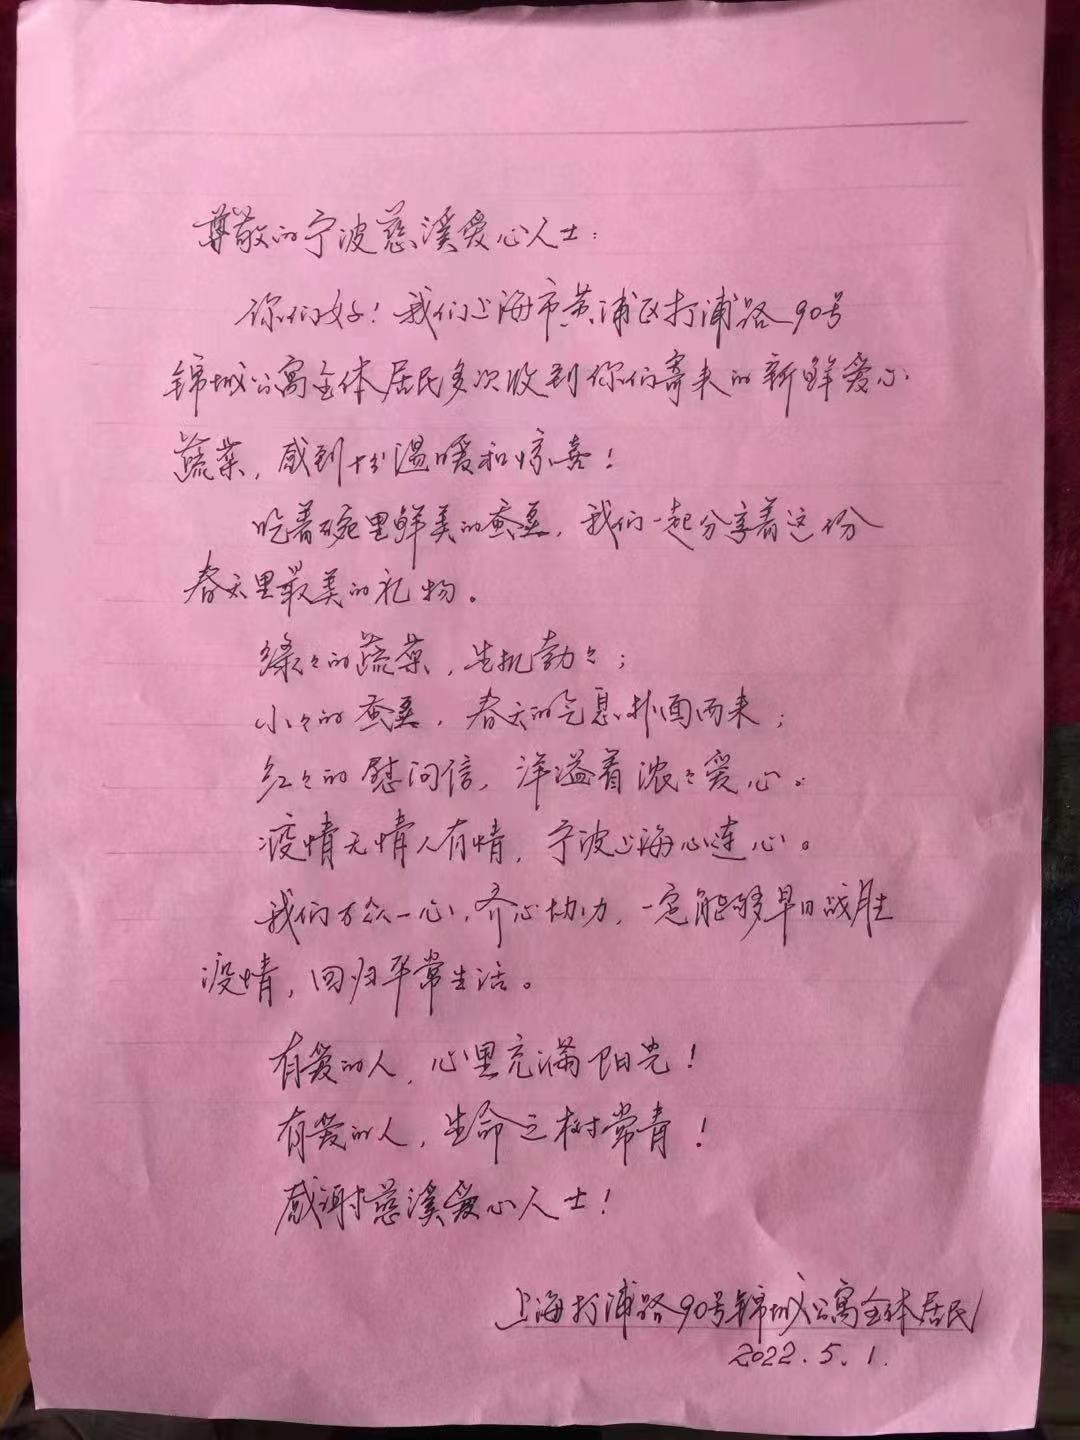 尊敬的宁波慈溪爱心人士：
你们好！我们上海市黄浦区打浦路90号
锦城公寓全体居民多次收到你们寄来的新鲜爱心
蔬菜，感到十分温暖和惊喜！
吃着碗里鲜美的蚕豆，我们一起分享着这份
春天里最美的礼物。
绿々的蔬菜，生机勃々；
小々的蚕豆，春天的气息扑面而来；
红々的慰问信，洋溢着浓々爱心。
疫情无情人有情，宁波上海心连心。
我们万众一心，齐心协力，一定能够早日战胜
疫情，回归平常生活。
有爱的人，心里充满阳光！
有爱的人，生命之树常青！
感谢慈溪爱心人士！
上海打浦路90号锦城公寓全体居民
2022.5.1.